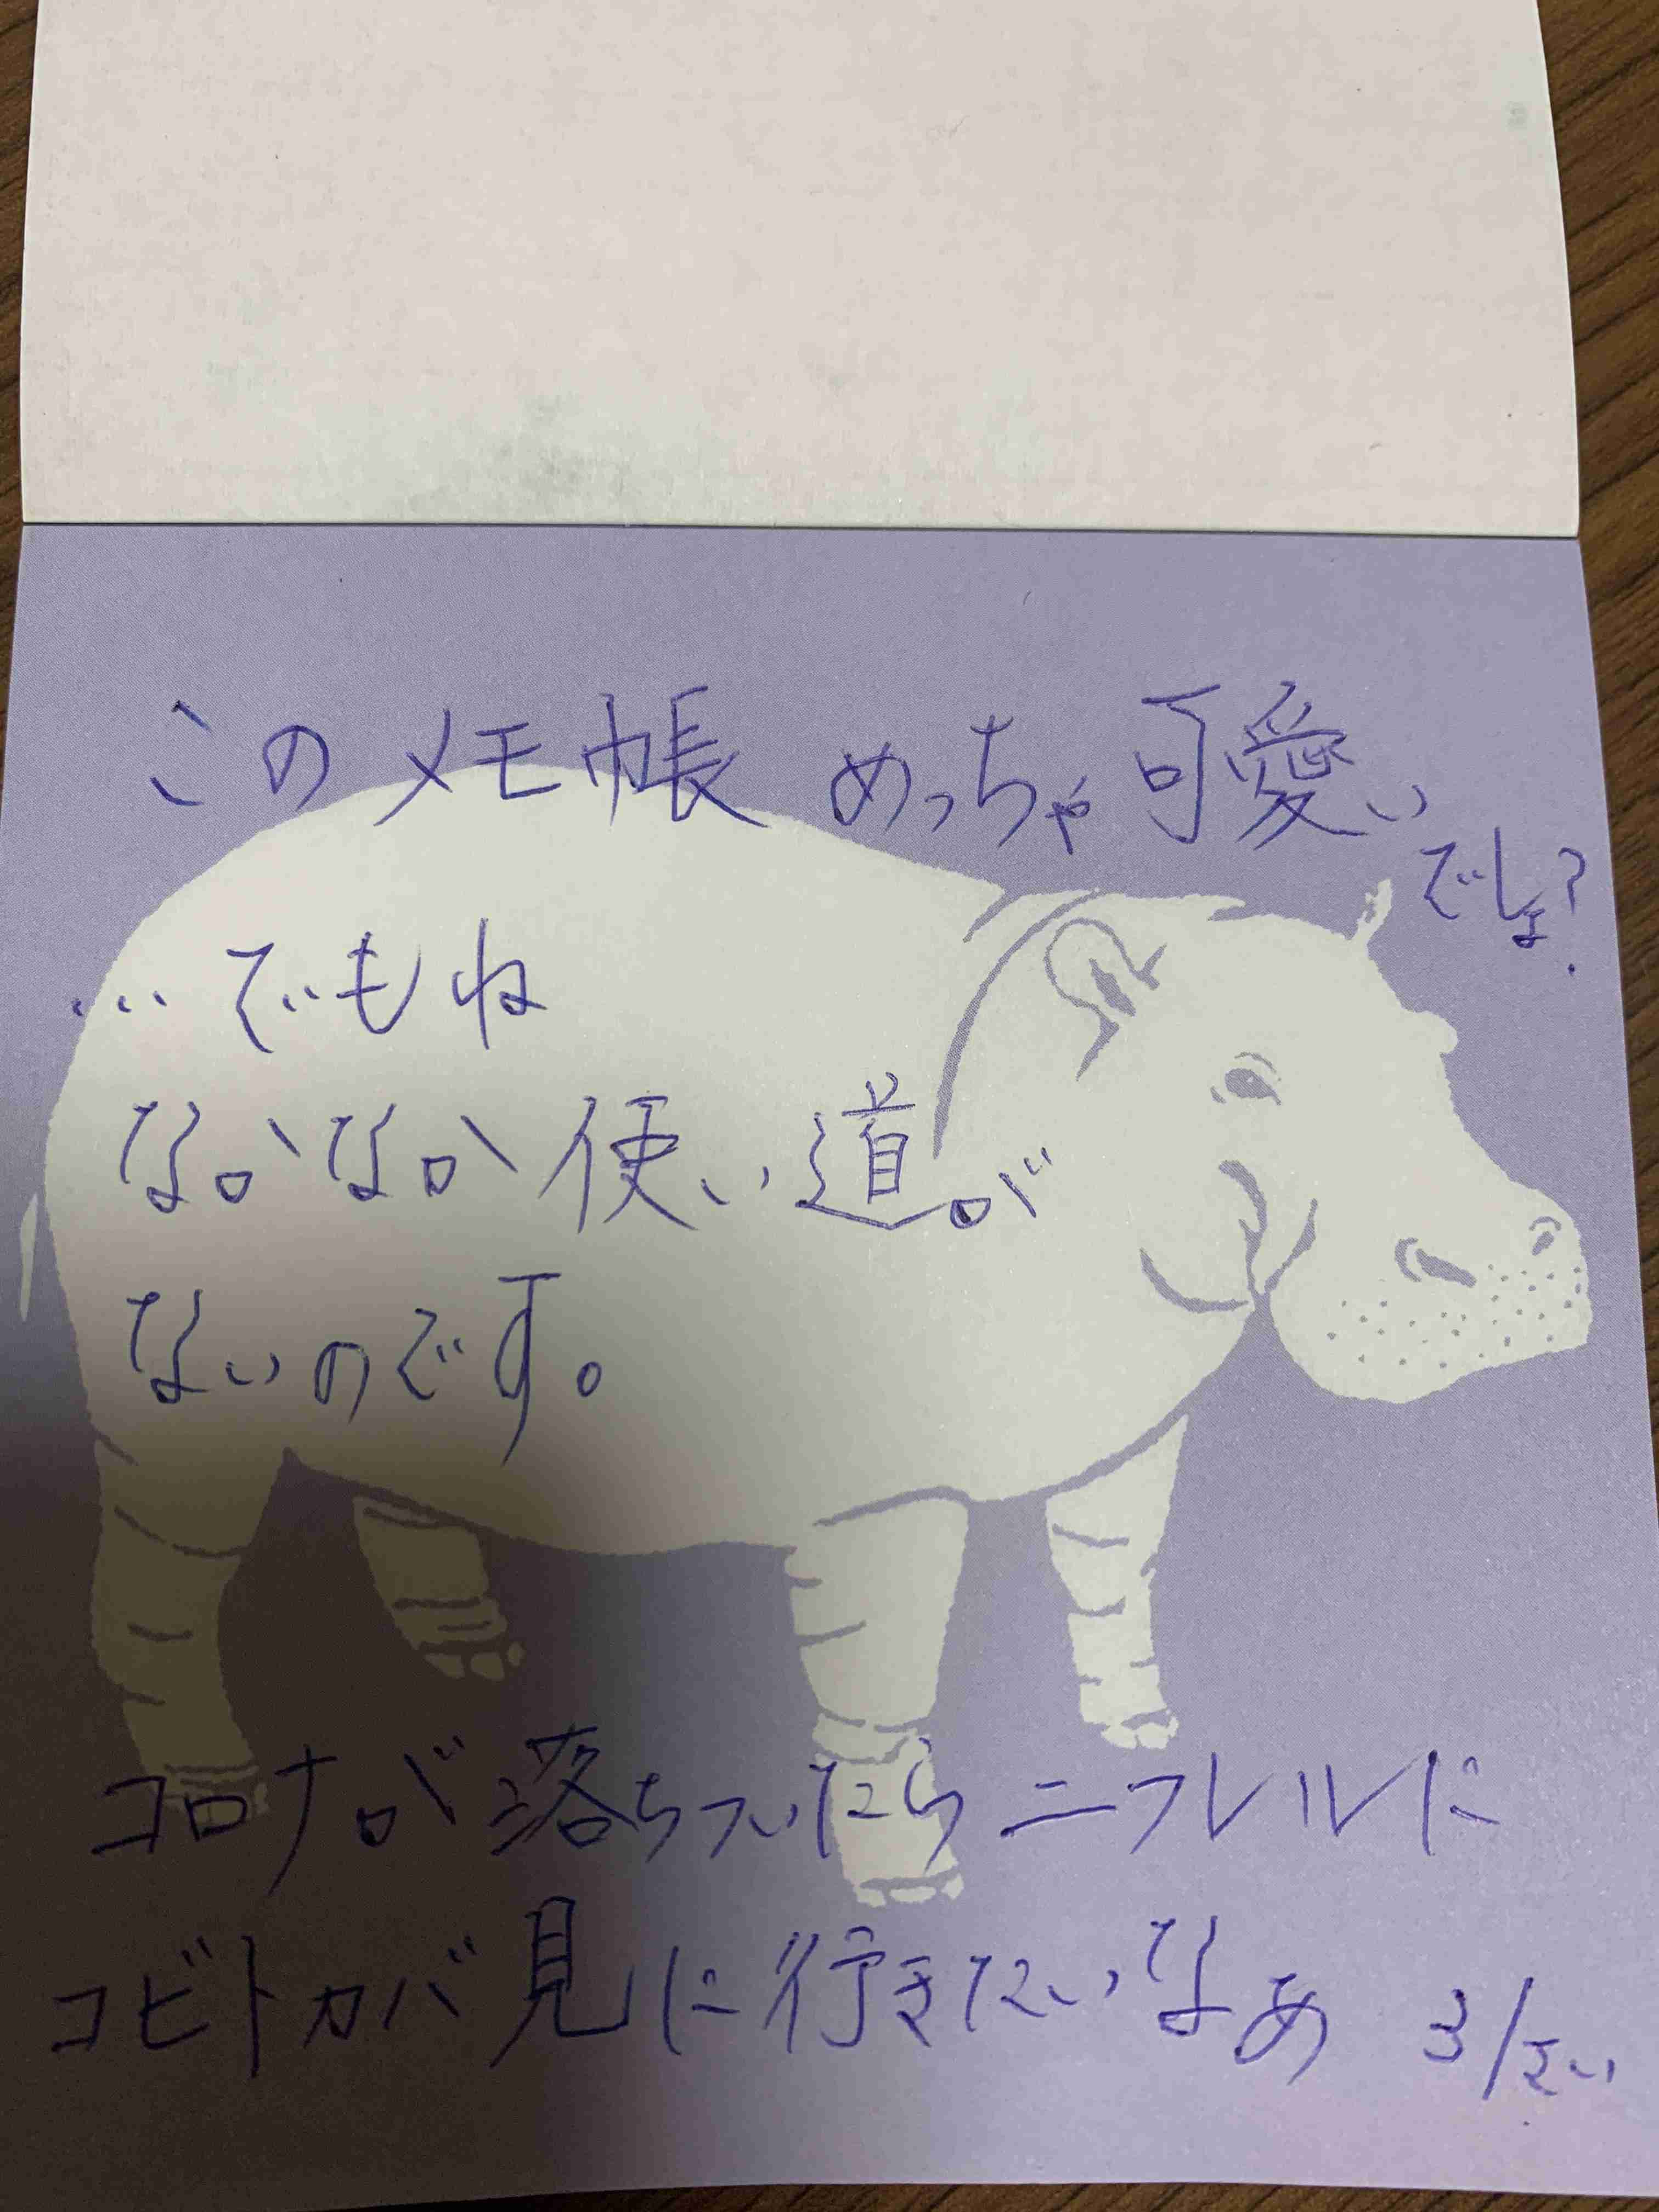 このメモ帳めっちゃ可愛い
でしょ?
…でもね
なかなか使い道が
ないのです。
コロナが落ちついたらニフレルに
コビトカバ見に行きたいなぁ